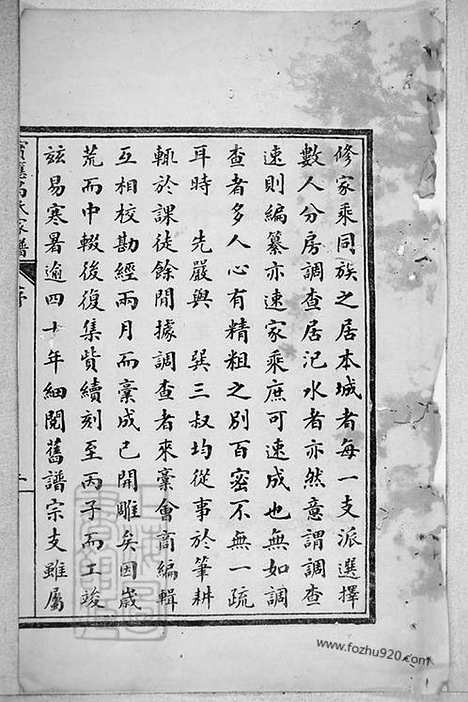 修家乘同族之居本城者每一支派選擇
數人分房調查居氾水者亦然意謂調查
速則編纂亦速家乘庶可速成也無如調
查者多人心有精粗之別百密不無一疏
耳時　先嚴與　巽三叔均從事於筆耕
輒於課徒餘閒據調查者來稾會商編輯
互相校勘經兩月而稾成已開雕矣因歲
荒而中輟後復集貲續刻至丙子而工竣
玆易寒暑逾四十年細閱舊譜宗支雖屬
氏家譜
序
www.fozhu920.com